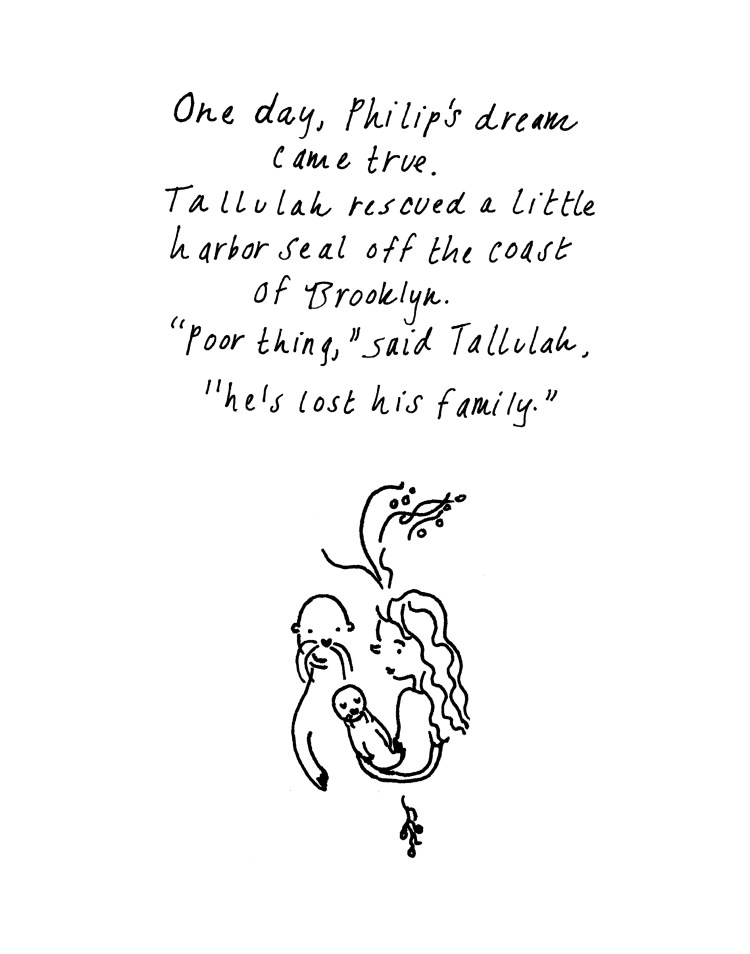 One day, Philip's dream
came true.
Tallulah rescued a little
harbor seal off the coast
of Brooklyn.
"Poor thing," said Tallulah,
"he's lost his family."